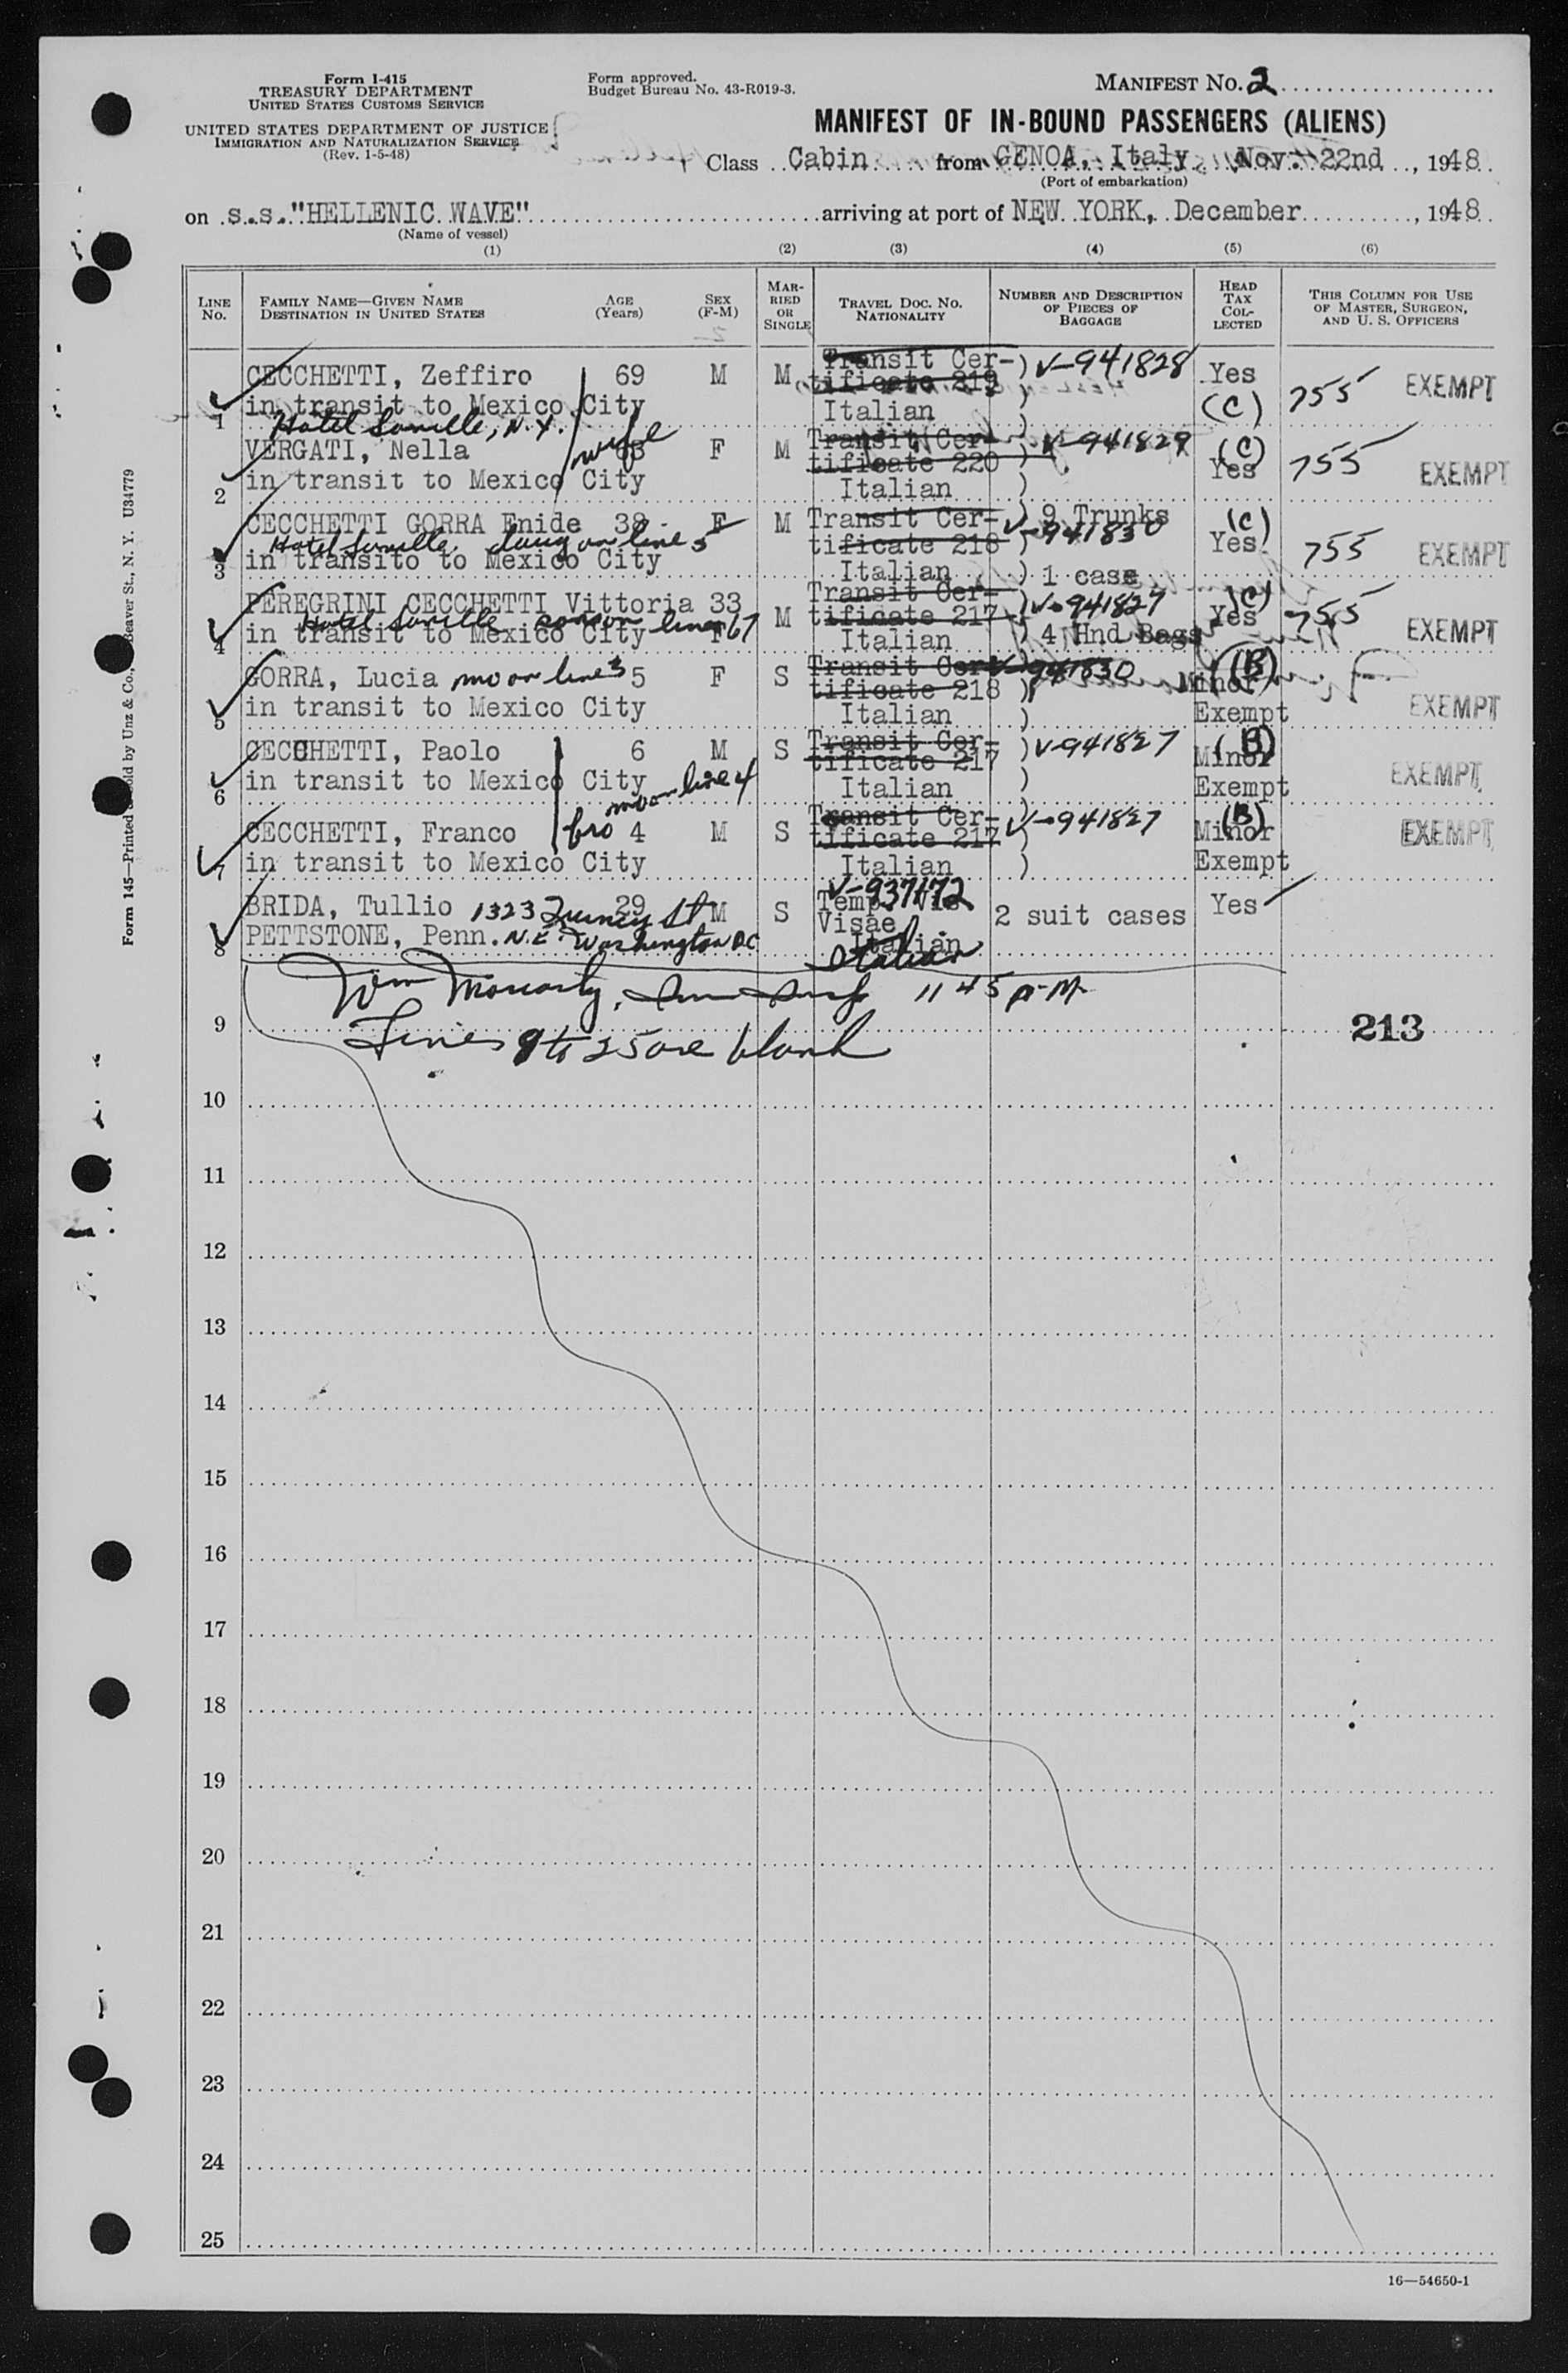 Form I-415
TREASURY DEPARTMENT
UNITED STATES CUSTOMS SERVICE
UNITED STATES DEPARTMENT OF JUSTICE
IMMIGRATION AND NATURALIZATION SERVICE
(Rev. 1-5-48)
Form approved.
Budget Bureau No. 43-R019-3.
MANIFEST No. 2
MANIFEST OF IN-BOUND PASSENGERS (ALIENS)
Class Cabin from GENOA, Italy, Nov. 22nd, 1948
(Port of embarkation)
on s.s."HELLENIC WAVE" arriving at port of NEW YORK, December, 1948
(Name of vessel)
(1) (2) (3) (4) (5) (6)
LINE No. FAMILY NAME—GIVEN NAME DESTINATION IN UNITED STATES AGE (Years) SEX (F-M) MARRIED OR SINGLE TRAVEL DOC. NO. NATIONALITY NUMBER AND DESCRIPTION OF PIECES OF BAGGAGE HEAD TAX COLLECTED THIS COLUMN FOR USE OF MASTER, SURGEON, AND U. S. OFFICERS
CECCHETTI, Zeffiro 69 M M Transit Cer-) V-941828 Yes
tificate 219 ) 755 EXEMPT
in transit to Mexico City Italian ) (C)
1 Hotel Saville, N.Y.
VERGATI, Nella wife F M Transit Cer- V-941829 (C)
tificate 220 ) Yes 755 EXEMPT
2 in transit to Mexico City Italian )
CECCHETTI GORRA Enide 38 F M Transit Cer-) 9 Trunks (C)
Hotel Saville daug on line 5 tificate 218 ) V-941830 Yes 755 EXEMPT
3 in transito to Mexico City Italian ) 1 case
PEREGRINI CECCHETTI Vittoria 33 Transit Cer- (C)
Hotel Saville sons on lines 67 M tificate 217 V-941827 Yes 755 EXEMPT
4 in transit to Mexico City F Italian ) 4 Hnd Bags
GORRA, Lucia mo on line 3 5 F S Transit Cer- V-941830 (B)
tificate 218 ) Minor
5 in transit to Mexico City Italian ) Exempt EXEMPT
CECCHETTI, Paolo 6 M S Transit Cer- ) V-941827 (B)
tificate 217 Minor
6 in transit to Mexico City Italian ) Exempt EXEMPT
mo on line 4
CECCHETTI, Franco bro 4 M S Transit Cer- V-941827 (B)
tificate 217 ) Minor EXEMPT
7 in transit to Mexico City Italian ) Exempt
BRIDA, Tullio 1323 Quincy St 29 M S V-937172 Yes
Temp. Vis
Visae 2 suit cases
8 PETTSTONE, Penn. N.E. Washington DC Italian
Italian
Wm Moriarty, 11 45 p.m.
9 Lines 9 to 25 are blank 213
10
11
12
13
14
15
16
17
18
19
20
21
22
23
24
25
16—54650-1
Form 145—Printed Sold by Unz & Co., Beaver St., N. Y. U34779